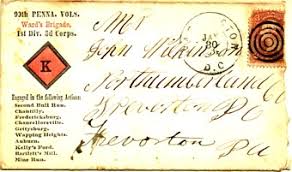 99th PENNA. VOLS.
Ward's Brigade,
1st Div. 3d Corps.
K
Engaged in the following Actions:
Second Bull Run.
Chantilly.
Fredericksburg.
Chancellorsville.
Gettysburg.
Wapping Heights.
Auburn.
Kelly's Ford.
Bartlett's Mill.
Mine Run.
JAN
20
D.C.
Mr
John Wilkinson
Northumberland Co
Treverton P O
Trevorton
Pa